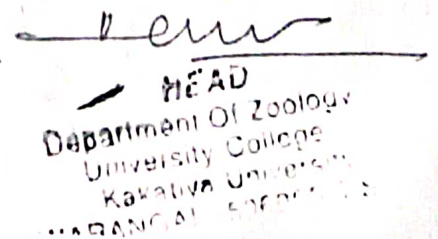 HEAD
Department Of Zoology
University College
Kakatiya University
WARANGAL